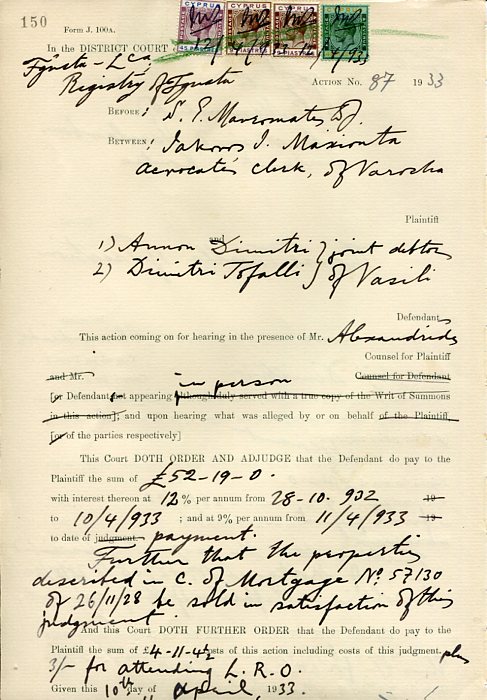 150
Form J. 100A.
CYPRUS CYPRUS CYPRUS
45 PIASTRES 9 PIASTRES 9 PIASTRES
In the DISTRICT COURT
Fgusta - Lca
Registry of Fgusta
ACTION No. 87 1933
BEFORE: S. E. Mavromates DJ.
BETWEEN: Iakovos I.
advocate's clerk, of Varosha
Plaintiff
and
1) Dimitri } joint debtors
2) Dimitri Tofalli } of Vasili
Defendants
This action coming on for hearing in the presence of Mr. Alexandrides
Counsel for Plaintiff
and Mr. Counsel for Defendant
in person
[or Defendant not appearing although duly served with a true copy of the Writ of Summons
in this action]; and upon hearing what was alleged by or on behalf of the Plaintiff
[or of the parties respectively]
This Court DOTH ORDER AND ADJUDGE that the Defendant do pay to the
Plaintiff the sum of £52-19-0.
with interest thereon at 12% per annum from 28-10-932 19
to 10/4/933 ; and at 9% per annum from 11/4/933 19
to date of judgment. payment.
Further that the properties
described in C. of Mortgage No. 57130
of 26/11/28 be sold in satisfaction of this
judgment
And this Court DOTH FURTHER ORDER that the Defendant do pay to the
Plaintiff the sum of £4-11-4½ costs of this action including costs of this judgment. plus
3/- for attending L.R.O.
Given this 10th day of April 1933.